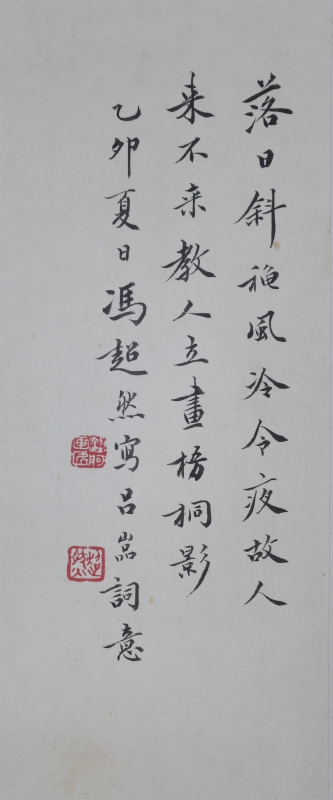 落日斜秋風冷今夜故人
来不来教人立盡梧桐影
乙卯夏日馮超然寫吕嵒詞意
超然